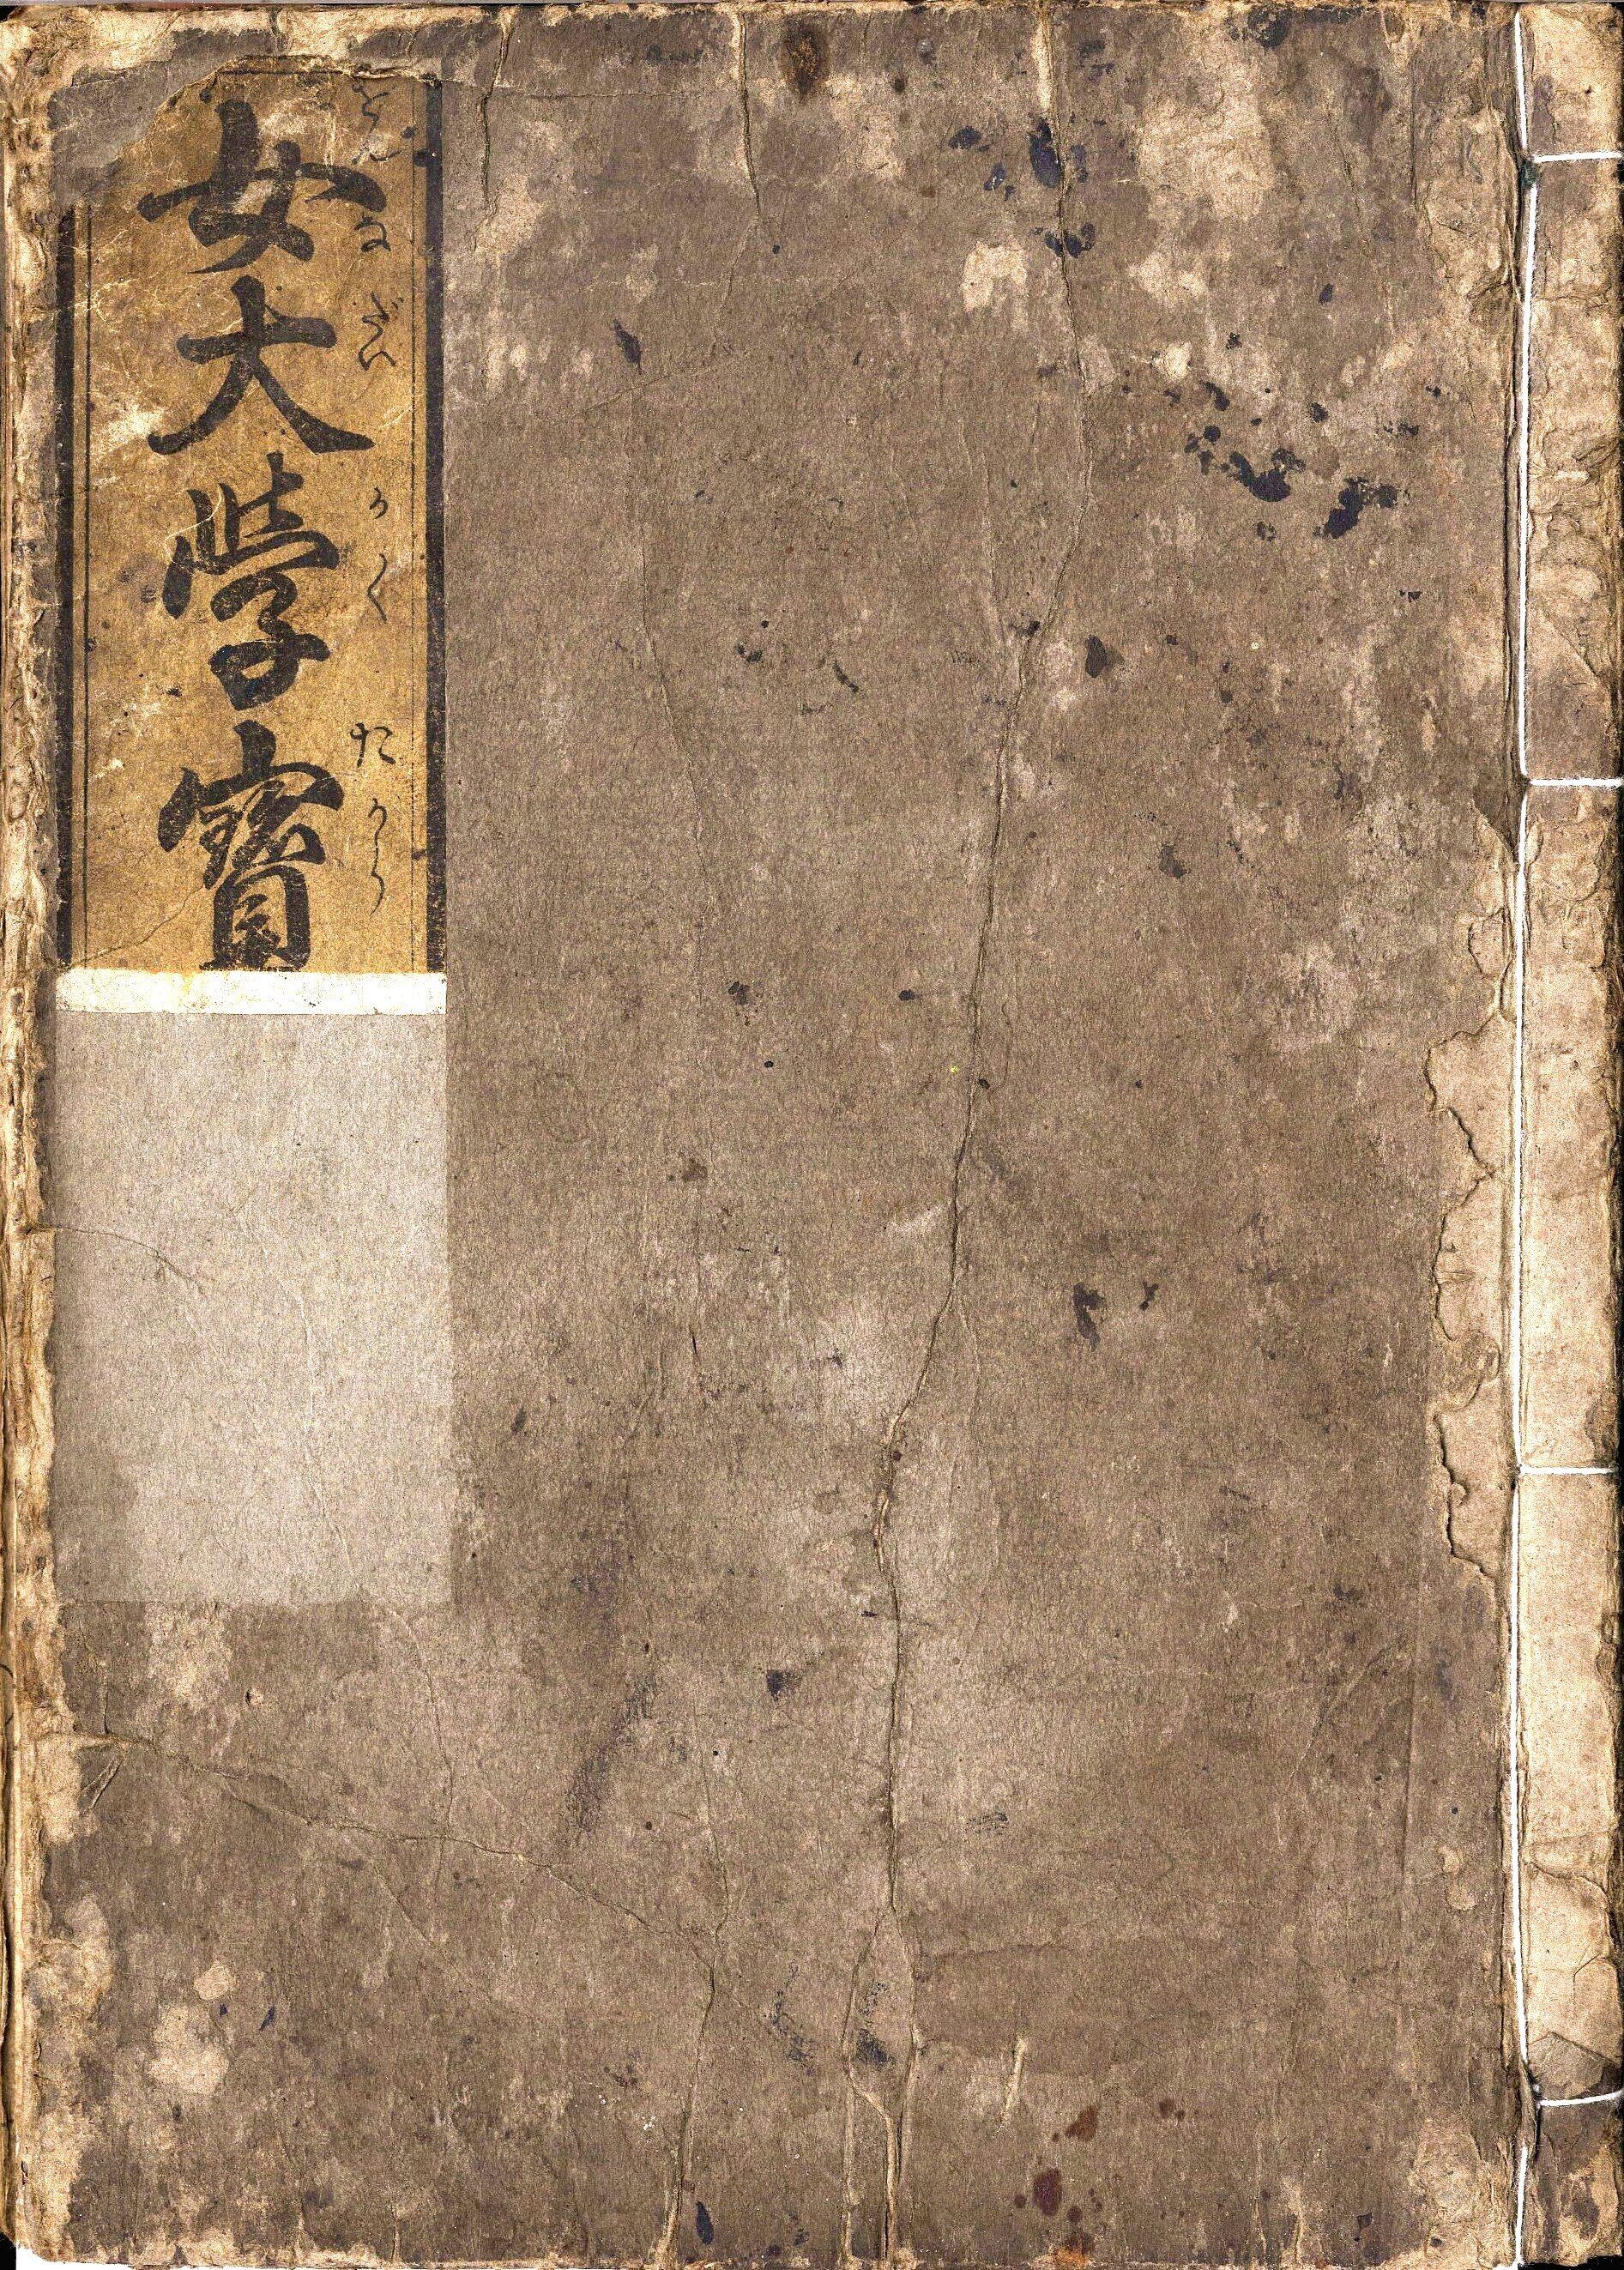 をんなだいかくたから
女大學寶